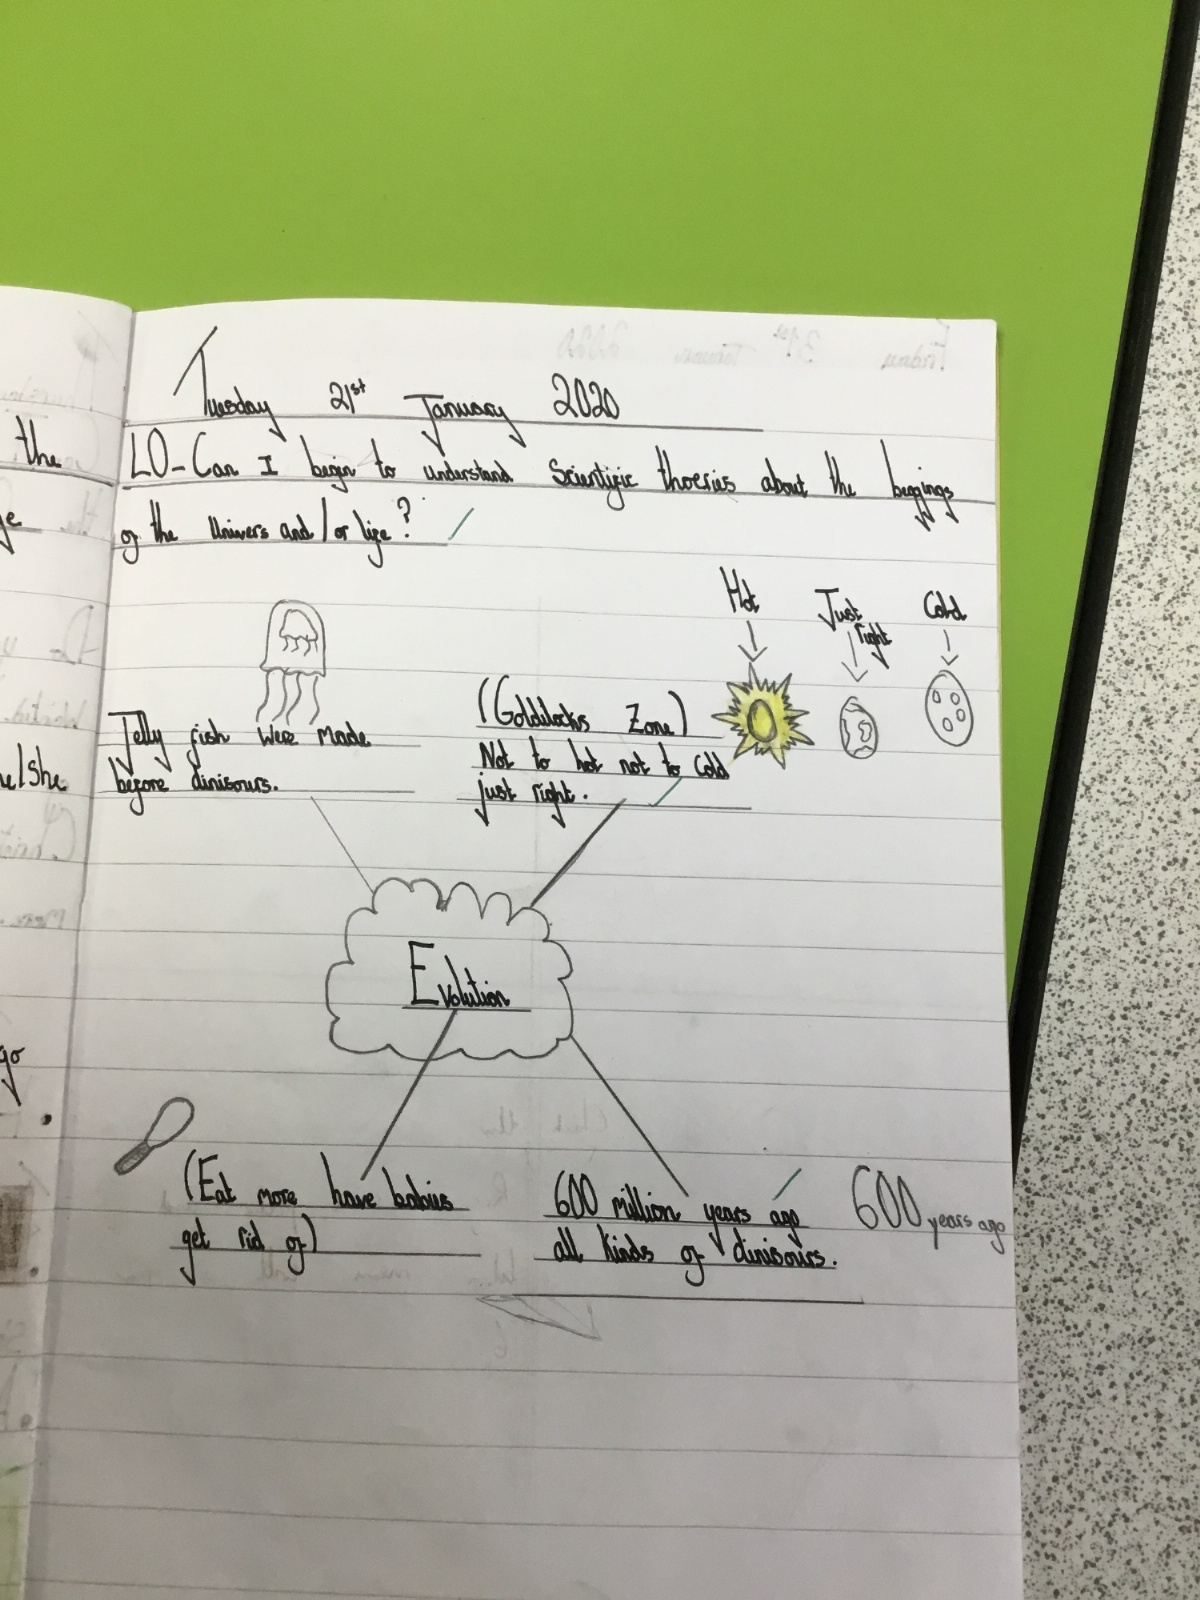 the
ge
he/she
go
Tuesday 21st January 2020
LO-Can I begin to understand Scientific thoeries about the beggings
of the Univers and/or life?
Hot
Just
right
Cold
Jelly fish were made
before dinisours.
(Goldilocks Zone)
Not to hot not to cold
just right.
Evolution
(Eat more have babies
get rid of)
600 million years ago
all kinds of dinisours.
600 years ago